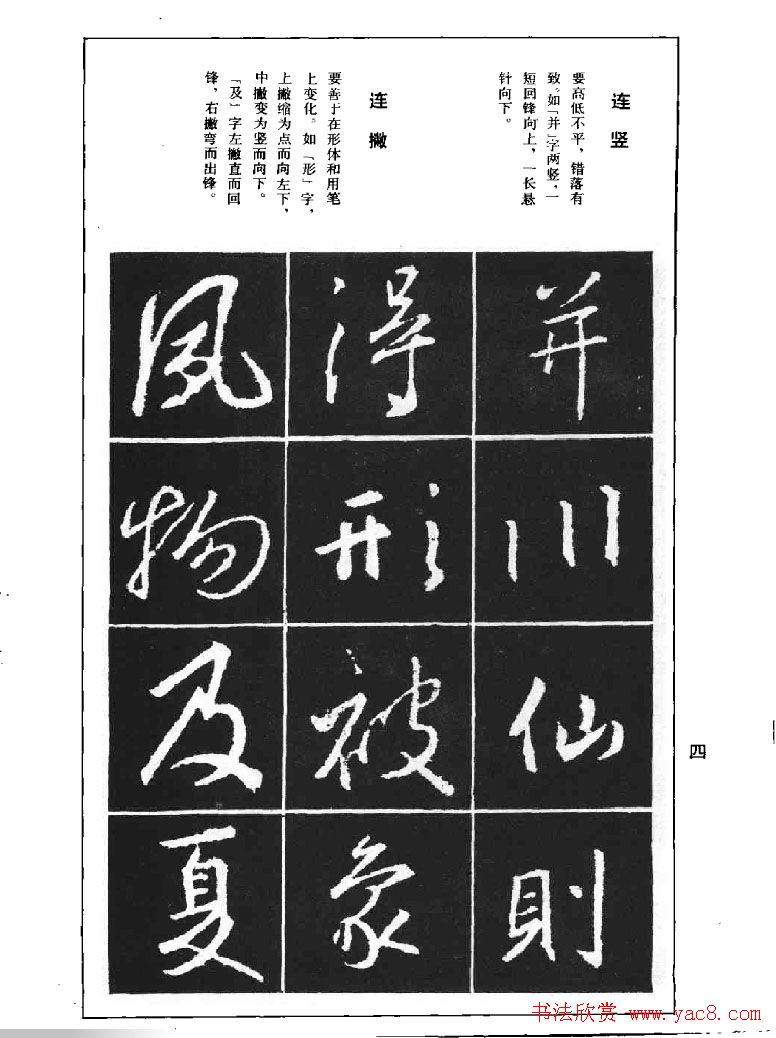 连竖
要高低不平，错落有
致。如「并」字两竖，一
短回锋向上，一长悬
针向下。
连撇
要善于在形体和用笔
上变化。如「形」字，
上撇缩为点而向左下，
中撇变为竖而向下。
「及」字左撇直而回
锋，右撇弯而出锋。
并
川
仙
則
得
形
被
象
風
物
及
夏
四
书法欣赏 www.yac8.com